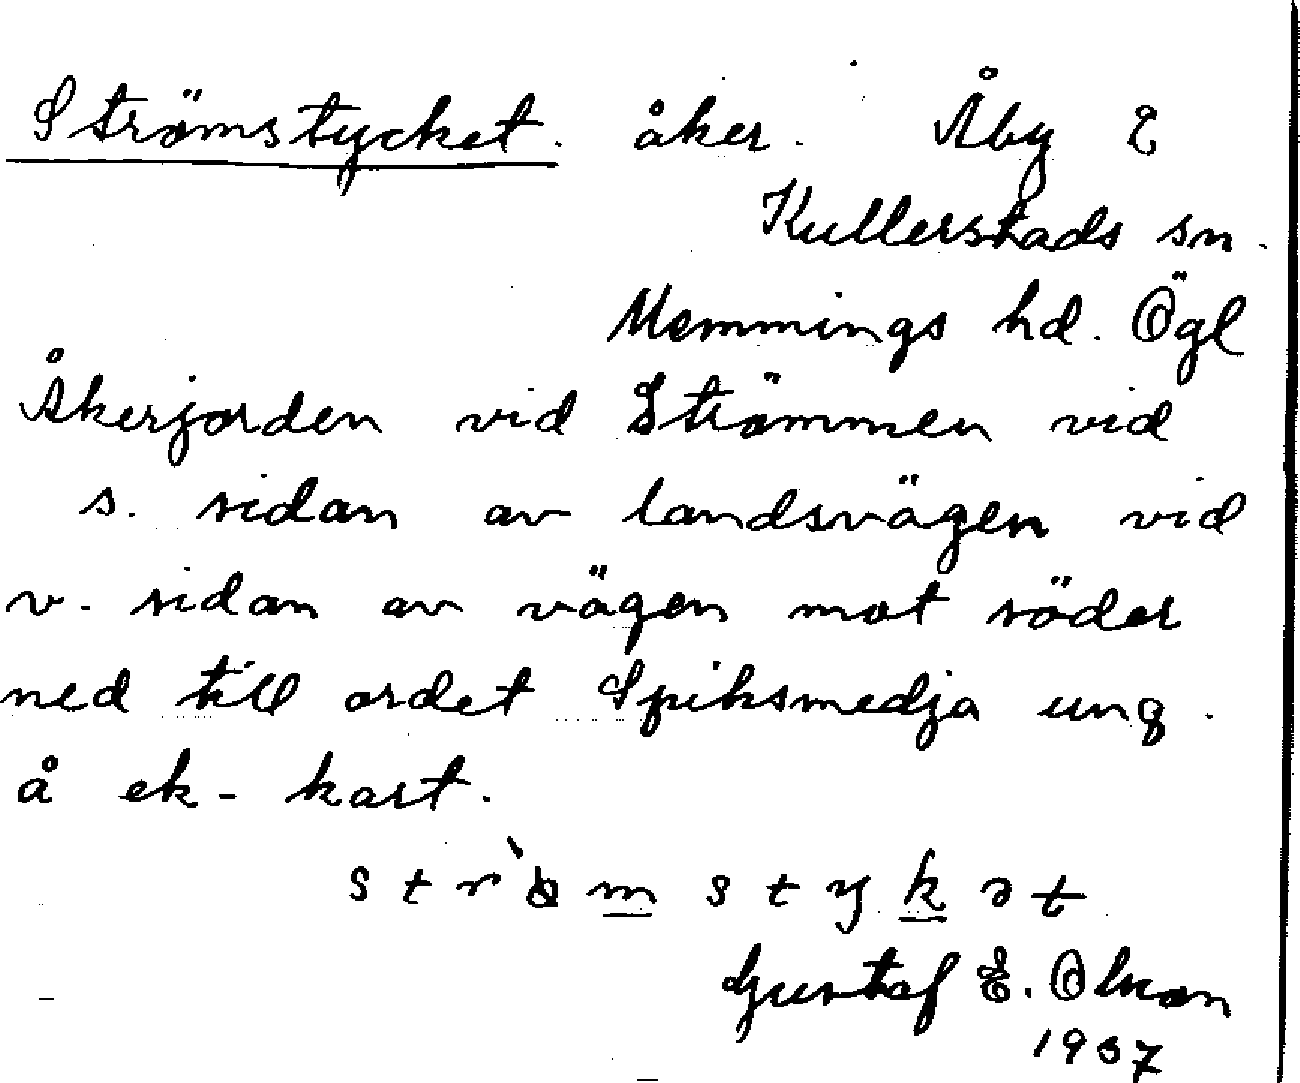 Strömstycket. åker. Åby 2
Kullerstads sn.
Memmings hd. Ögl
Åkerjorden vid Strömmen vid
s. sidan av landsvägen vid
v. sidan av vägen mot söder
ned till ordet Spiksmedja ung.
å ek-kart.
Gustaf E. Olson
1937